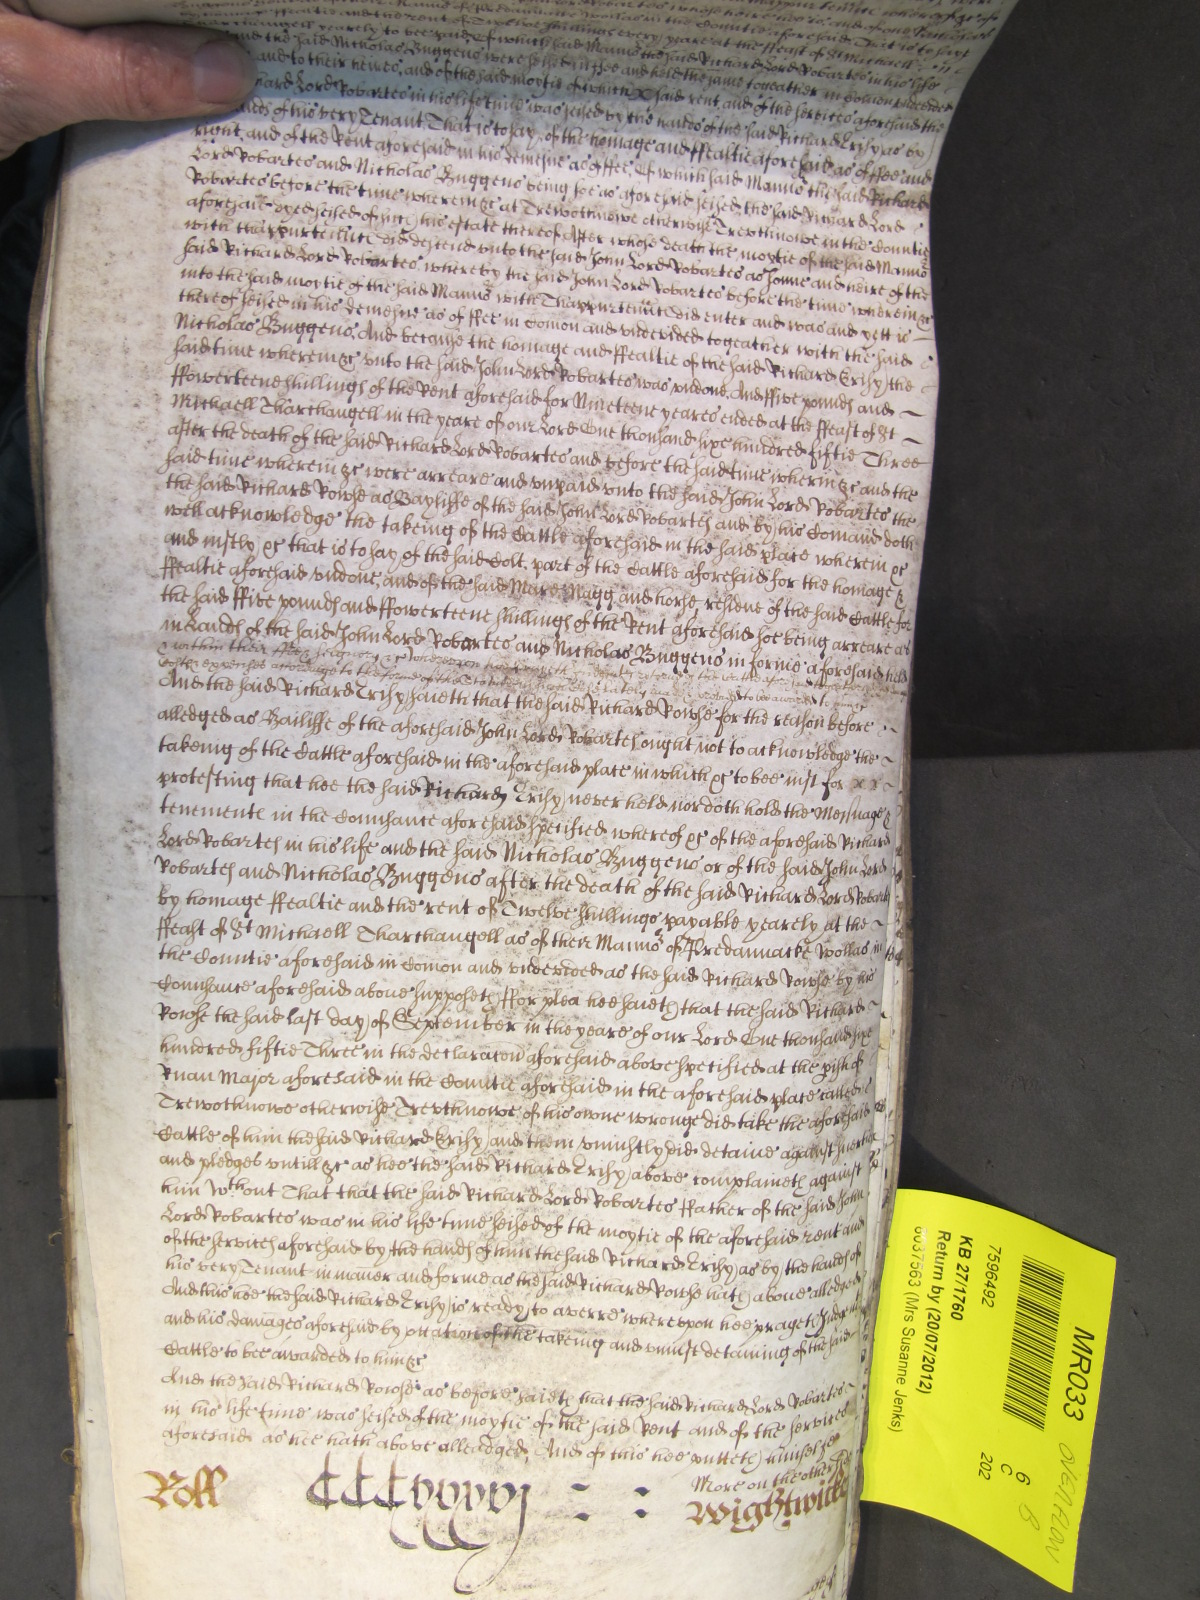 yearely to bee paid Of which said Mannor the said Richard Lord Robartes in his life
and the said Nicholas Buggens were seised in ffee and held the same togeather in Comon undevided
and to their heires, and of the said moytie of which said rent, and of the services aforesaid the
Lord Robartes in his life time was seised by the hands of the said Richard Erisy as by
hands of his very Tenant That is to say, of the homage and ffealtie aforesaid as of ffee and
right, and of the Rent aforesaid in his demesne as of ffee, Of which said Mannor the said Richard
Lord Robartes and Nicholas Buggens being soe as aforesaid seised, the said Richard Lord
Robartes before the time wherein &c at Trewothnowe otherwise Trevthnowe in the Countie
aforesaid dyed seised of such his estate thereof After whose death the moytie of the said Mannor
with Thappurtenances did descend unto the said John Lord Robartes as sonne and heire of the
said Richard Lord Robartes, whereby the said John Lord Robartes before the time wherein &c
into the said moytie of the said Mannor with Thappurtenances did enter and was and yett is
thereof seised in his demesne as of ffee in Comon and undevided togeather with the said
Nicholas Buggens, And because the homage and ffealtie of the said Richard Erisy the
said time wherein &c unto the said John Lord Robartes was undone, And ffive pounds and
ffowerteene shillings of the Rent aforesaid for Nineteene yeares ended at the ffeast of St
Michaell Tharchangell in the yeare of our Lord One thousand sixe hundred fiftie Three
after the death of the said Richard Lord Robartes and before the said time wherein &c and the
said time wherein &c were arreare and unpaid unto the said John Lord Robartes the
the said Richard Rowse as Bayliffe of the said John Lord Robartes and by his Comand doth
well acknowledge the takeing of the Cattle aforesaid in the said place wherein &c
and iustly &c that is to say of the said Colt, part of the Cattle aforesaid for the homage &
ffealtie aforesaid undone, and of the said Mare Nagg and horse, residue of the said Cattle for
the said ffive pounds and ffowerteene shillings of the Rent aforesaid soe being arreare as
in Lands of the said John Lord Robartes and Nicholas Buggens in forme aforesaid held
within their ffee
Costes expenses according to the forme of the Statute to bee awarded to him &c
And the said Richard Erisy saieth that the said Richard Rowse for the reason before
alledged as Bailiffe of the aforesaid John Lord Robartes ought not to acknowledge the
takeing of the Cattle aforesaid in the aforesaid place in which &c to bee iust for
protesting that hee the said Richard Erisy never held nor doth hold the Messuage &
tenemente in the Conusance aforesaid specified whereof &c of the aforesaid Richard
Lord Robartes in his life and the said Nicholas Buggens or of the said John Lord
Robartes and Nicholas Buggens after the death of the said Richard Lord Robartes
by homage ffealtie and the rent of Twelve shillings payable yearely at the
ffeast of St Michaell Tharchangell as of their Mannor of Predannacke Wollas in
the Countie aforesaid in Comon and undevided as the said Richard Rowse by his
Conusance aforesaid above supposeth, ffor plea hee saieth that the said Richard
Rowse the said last day of September in the yeare of our Lord One thousand sixe
hundred fiftie Three in the declaracon aforesaid above specified at the pish of
Ruan Major aforesaid in the Countie aforesaid in the aforesaid place called
Trewothnowe otherwise Trevthnowe, of his owne wronge did take the aforesaid
Cattle of him the said Richard Erisy and them uniustly did detaine against suerties
and pledges untill &c as hee the said Richard Erisy above complaineth against
him wthout That that the said Richard Lord Robartes ffather of the said John
Lord Robartes was in his life time seised of the moytie of the aforesaid rent and
of the services aforesaid by the hands of him the said Richard Erisy as by the hands of
his very Tenant in maner and forme as the said Richard Rowse hath above alledged
And this hee the said Richard Erisy is ready to averre whereupon hee prayeth Judgment
and his damages aforesaid by occation of the takeing and uniust detaining of the said
Cattle to bee awarded to him &c
And the said Richard Rowse as before saith that the said Richard Lord Robartes
in his life time was seised of the moytie of the said Rent and of the services
aforesaid as hee hath above alleadged, And of this hee putteth himself
More on the other side
Roll CCCxxxxvj Wightwicke
MR033 OVERFLOW
7596492 6 C 202 B
KB 27/1760
Return by (20/07/2012)
0037563 (Mrs Susanne Jenks)